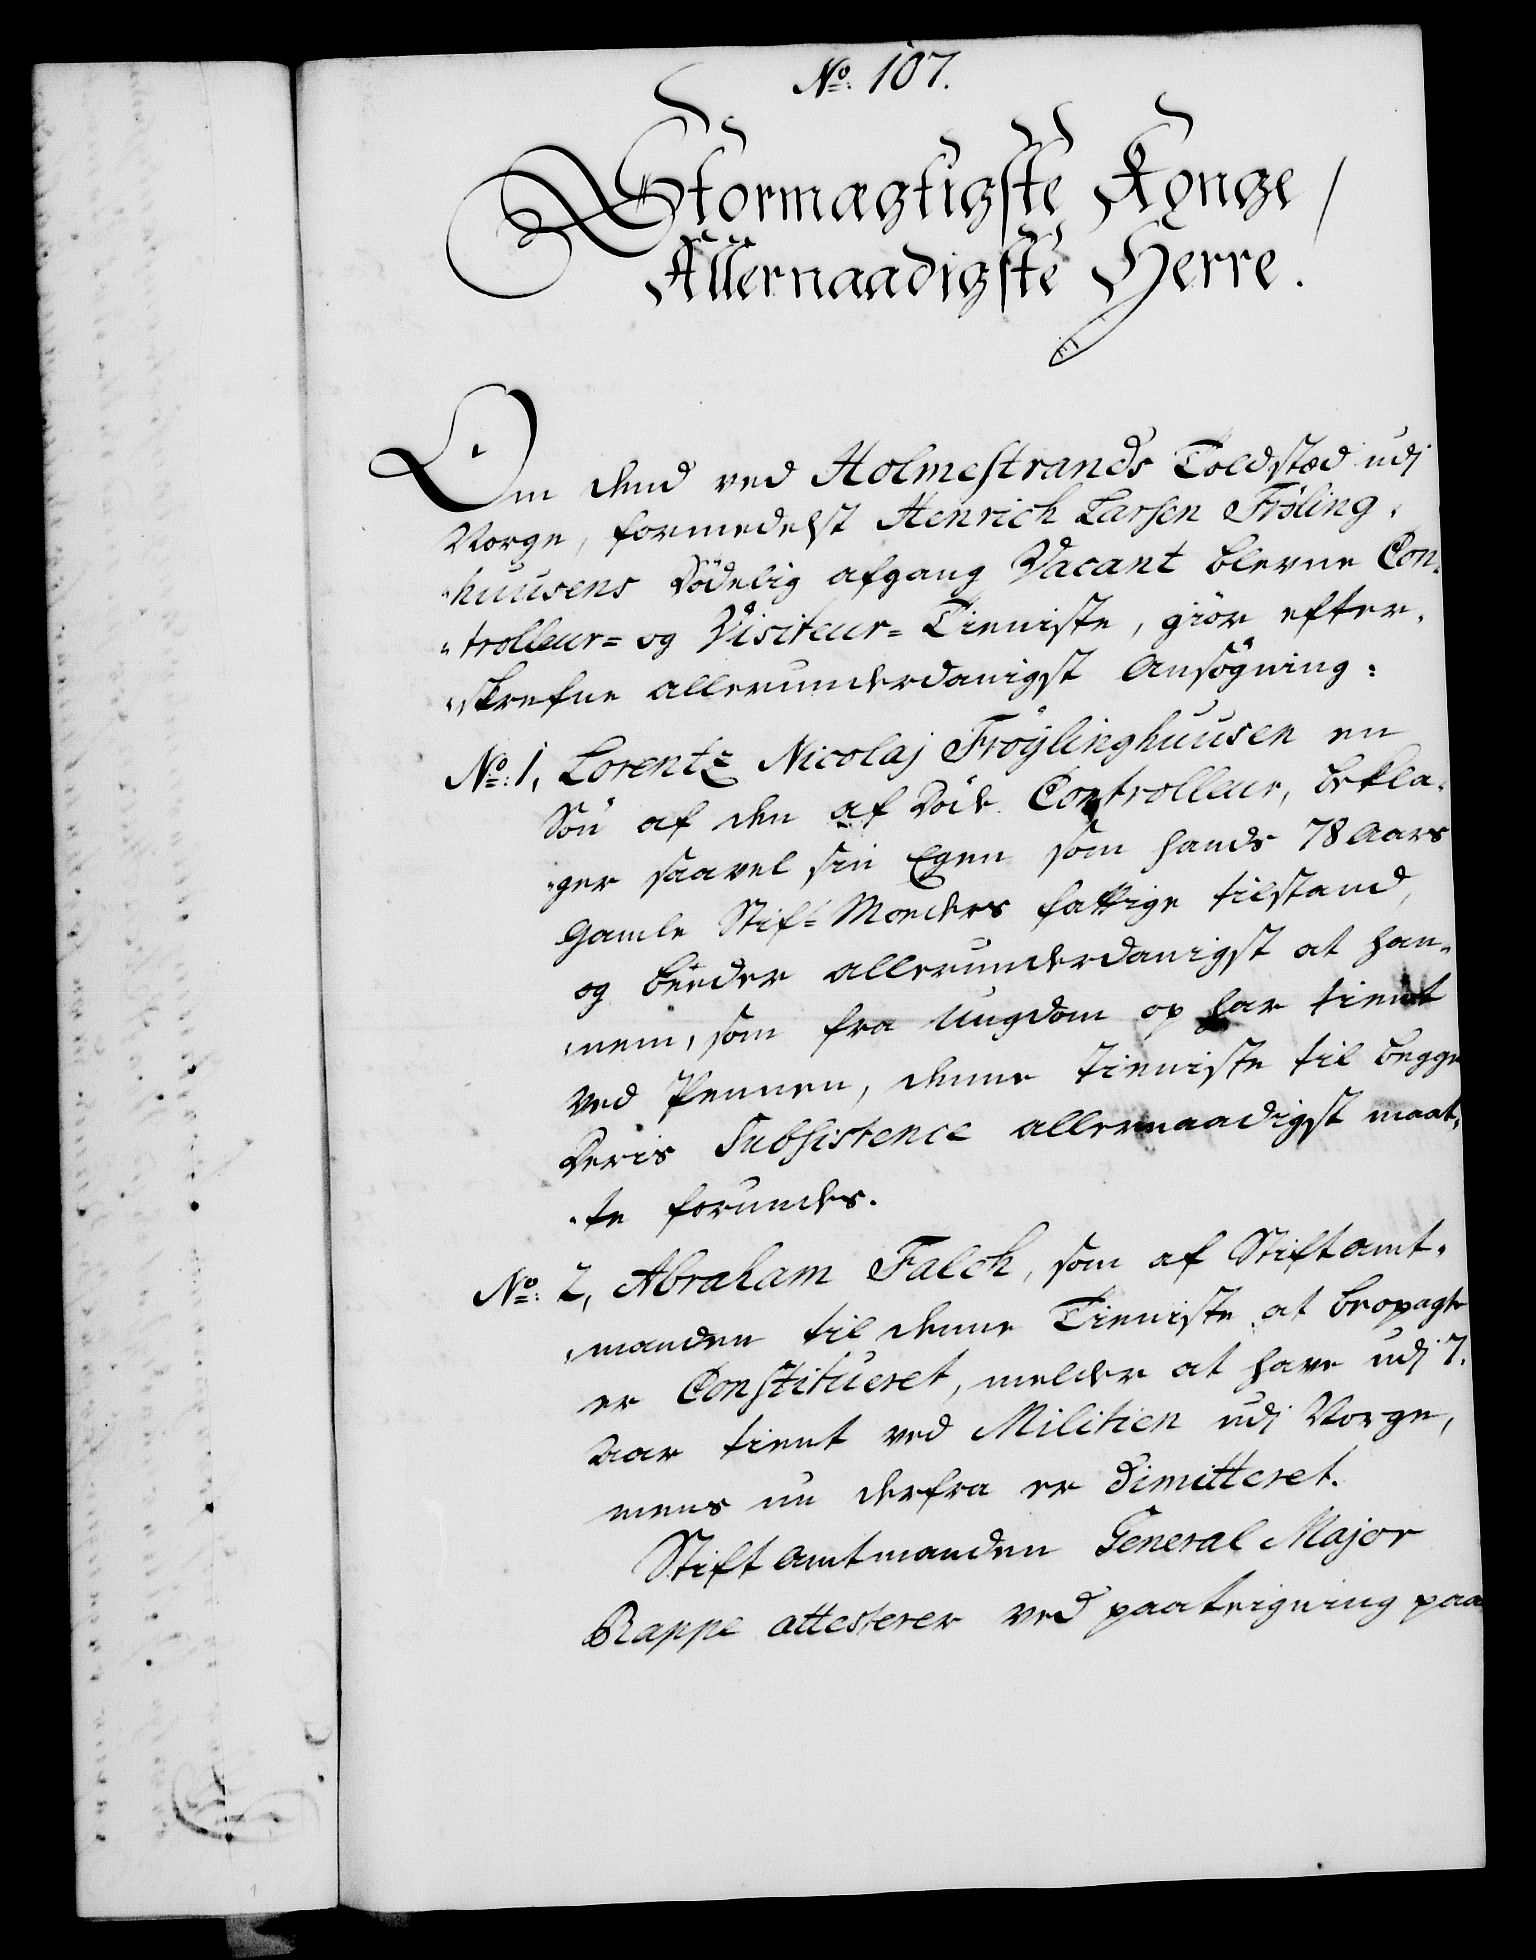 No: 107.
Stormægtigste Konge /
Allernaadigste Herre.
Om dend ved Holmestrands Toldstæd udj
Norge, formedelst Henrich Larsen Frøling-
"huusens Dödelig afgang Vacant blevne Con-
"trolleur= og Visiteur= Tieniste, giör efter-
"skrefne allerunderdanigst Ansögning:
No: 1, Lorentz Nicolaj Fröÿlinghuusen en
Sön af den af döde Controlleur, bekla-
"ger saavel sin Egen som hands 78 Aars
Gamle Stif= Moders fattige tilstand,
og beeder allerunderdanigst at han-
"nem, som fra Ungdom op har tient
ved Pennen, denne tieniste til begge
Deris Subsistence allernaadigst maat-
"te forundes.
No: 2, Abraham Falck, som af Stiftamt-
"manden til denne Tieniste at beopagte
er Constitueret, melder at have udj 7.
Aar tient ved Militien udj Norge,
mens nu derfra er dimitteret.
Stiftamtmanden General Major
Rappe attesterer ved paateigning paa